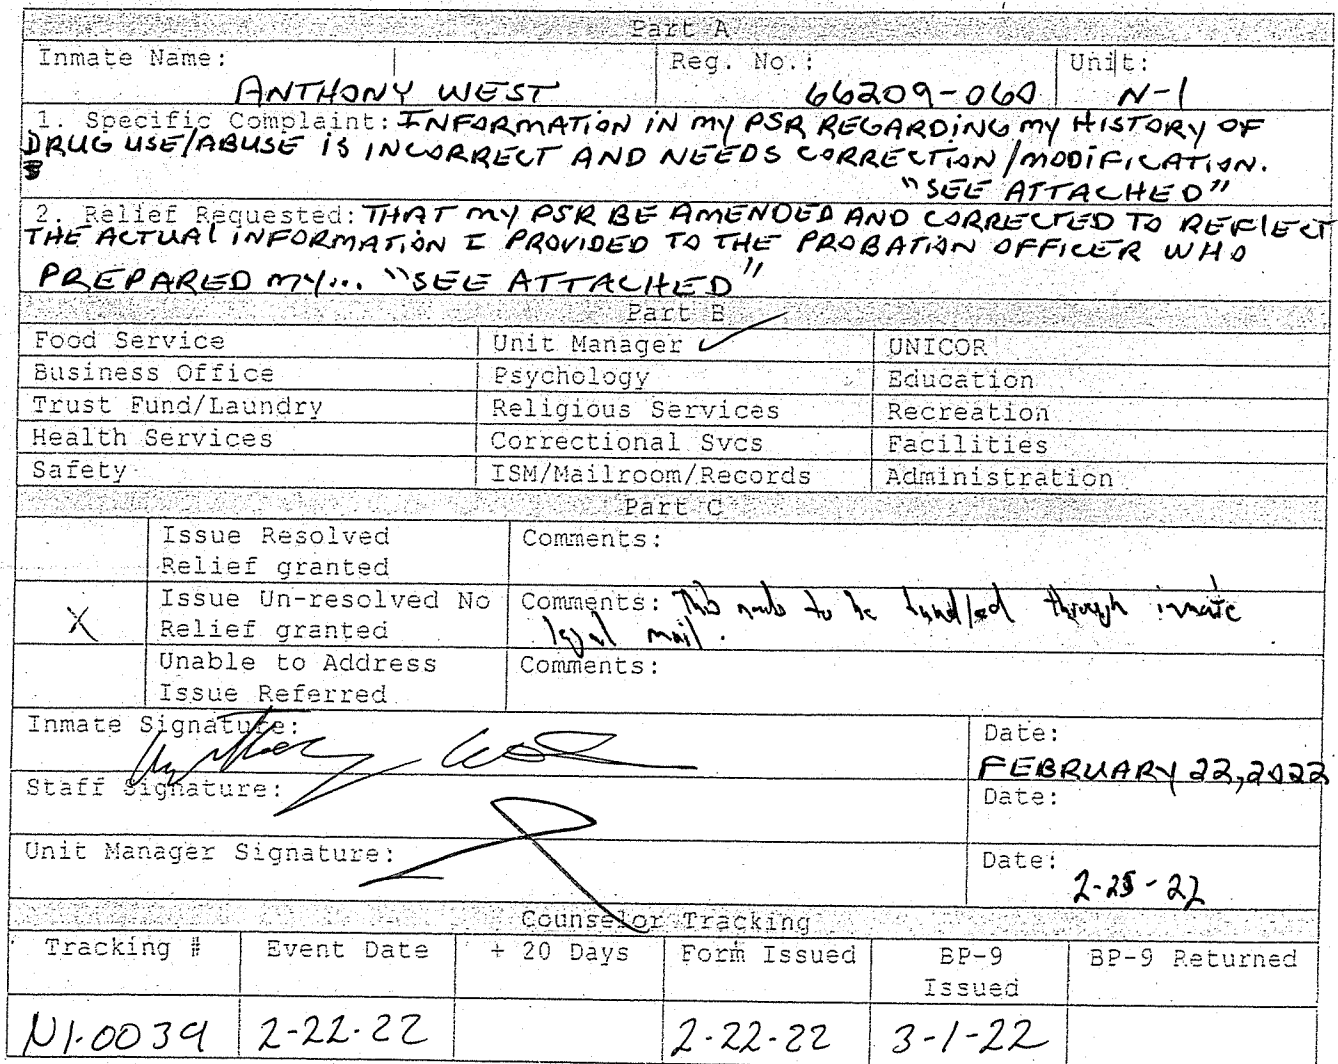 Part A
Inmate Name: Reg. No.: Unit:
ANTHONY WEST 66209-060 N-1
1. Specific Complaint: INFORMATION IN MY PSR REGARDING MY HISTORY OF
DRUG USE/ABUSE IS INCORRECT AND NEEDS CORRECTION/MODIFICATION.
"SEE ATTACHED"
2. Relief Requested: THAT MY PSR BE AMENDED AND CORRECTED TO REFLECT
THE ACTUAL INFORMATION I PROVIDED TO THE PROBATION OFFICER WHO
PREPARED MY... "SEE ATTACHED"
Part B
Food Service Unit Manager ✓ UNICOR
Business Office Psychology Education
Trust Fund/Laundry Religious Services Recreation
Health Services Correctional Svcs Facilities
Safety ISM/Mailroom/Records Administration
Part C
Issue Resolved Comments:
Relief granted
Issue Un-resolved No Comments: This needs to be handled through inmate
X Relief granted legal mail.
Unable to Address Comments:
Issue Referred
Inmate Signature: Date:
Anthony West FEBRUARY 22, 2022
Staff Signature: Date:
Unit Manager Signature: Date:
2-25-22
Counselor Tracking
Tracking # Event Date + 20 Days Form Issued BP-9 BP-9 Returned
Issued
N1-0039 2-22-22 2-22-22 3-1-22